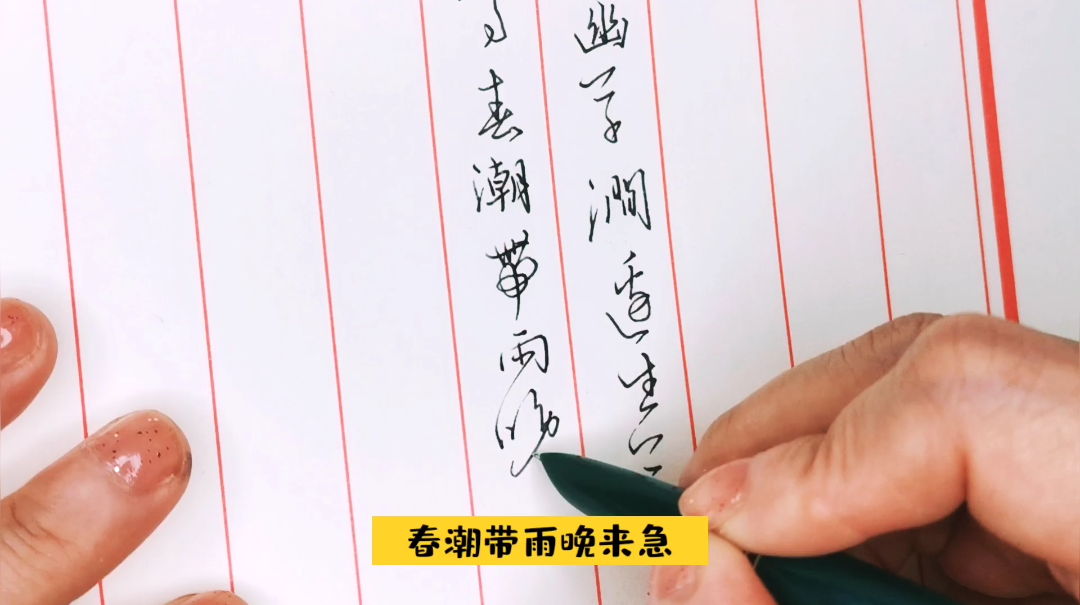 幽草澗邊生
春潮帶雨晚
春潮带雨晚来急